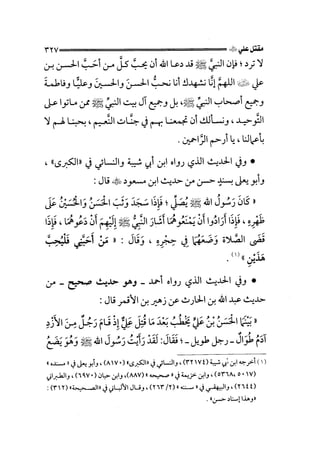 مقتل علي ﵁ ٣٢٧
لا ترد ؛ فإن النبي ﷺ قد دعا الله أن يحب كل من أحب الحسن بن
علي ﵄ اللهم إنا نشهدك أنا نحب الحسن والحسين وعليًّا وفاطمة
وجميع أصحاب النبي ﷺ، بل وجميع آل بيت النبي ﷺ ممن ماتوا على
التوحيد ، ونسألك أن تجمعنا بهم في جنات النعيم ، بحبنا لهم لا
بأعمالنا ، يا أرحم الراحمين .
• وفي الحديث الذي رواه ابن أبي شيبة والنسائي في «الكبرى» ،
وأبو يعلى بسند حسن من حديث ابن مسعود ﵁ قال :
« كَانَ رَسُولُ الله ﷺ يُصَلِّي ؛ فَإِذَا سَجَدَ وَثَبَ الْحَسَنُ وَالْحُسَيْنُ عَلَى
ظَهْرِهِ ، فَإِذَا أَرَادُوا أَنْ يَمْنَعُوهُمَا أَشَارَ النَّبِيُّ ﷺ إِلَيْهِمْ أَنْ دَعُوهُمَا ، فَإِذَا
قَضَى الصَّلَاةَ وَضَعَهُمَا فِي حِجْرِهِ ، وَقَالَ : « مَنْ أَحَبَّنِي فَلْيُحِبَّ
هَذَيْنِ »(١) .
• وفي الحديث الذي رواه أحمد - وهو حديث صحيح - من
حديث عبد الله بن الحارث عن زهير بن الأقمر قال :
« بَيْنَمَا الْحَسَنُ بْنُ عَلِيٍّ يَخْطُبُ بَعْدَ مَا قُتِلَ عَلِيٌّ إِذْ قَامَ رَجُلٌ مِنَ الْأَزْدِ
آدَمُ طُوَالٌ - رجل طويل - ؛ فَقَالَ : لَقَدْ رَأَيْتُ رَسُولَ الله ﷺ وَهُوَ يَضَعُ
(١) أخرجه ابن أبي شيبة (٣٢١٧٤) ، والنسائي في «الكبرى» (٨١٧٠) ، وأبو يعلى في «مسنده»
(٥٠١٧ ،٥٣٦٨) ، وابن خزيمة في « صحيحه » (٨٨٧) ، وابن حبان (٦٩٧٠) ، والطبراني
(٢٦٤٤) ، والبيهقي في « سننه » (٢/ ٢٦٣) ، وقال الألباني في « الصحيحة » (٣١٢) :
«وهذا إسناد حسن» .